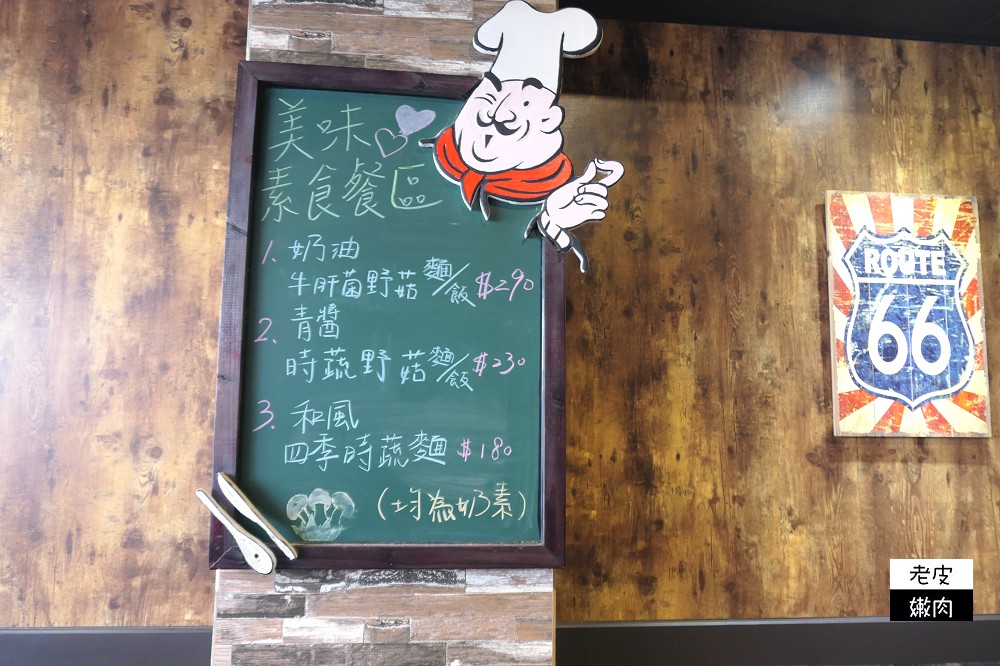 美味
素食餐區
1. 奶油
牛肝菌野菇麵/飯 $290
2. 青醬
時蔬野菇麵/飯 $230
3. 和風
四季時蔬麵 $180
(均為奶素)
ROUTE
66
老皮
嫩肉